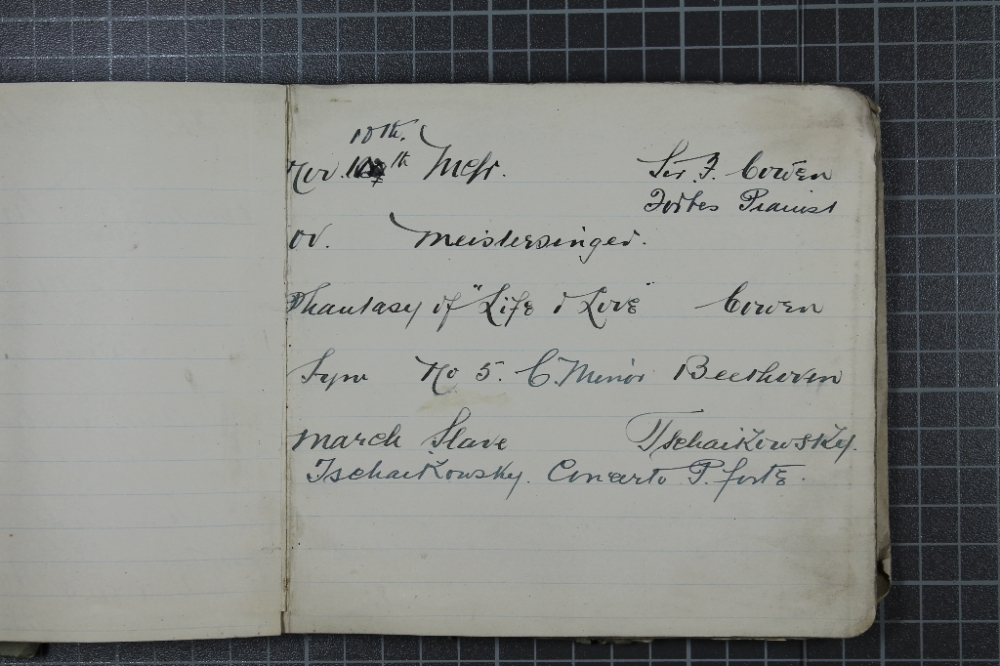 10th.
Nov. th Mcfr. Sir. F. Cowen
Forbes Pianist
Ov. Meistersinger.
Phantasy of "Life & Love" Cowen
Sym No 5. C. Minor Beethoven
March Slave Tschaikowsky.
Tschaikowsky. Concerto P. forte.